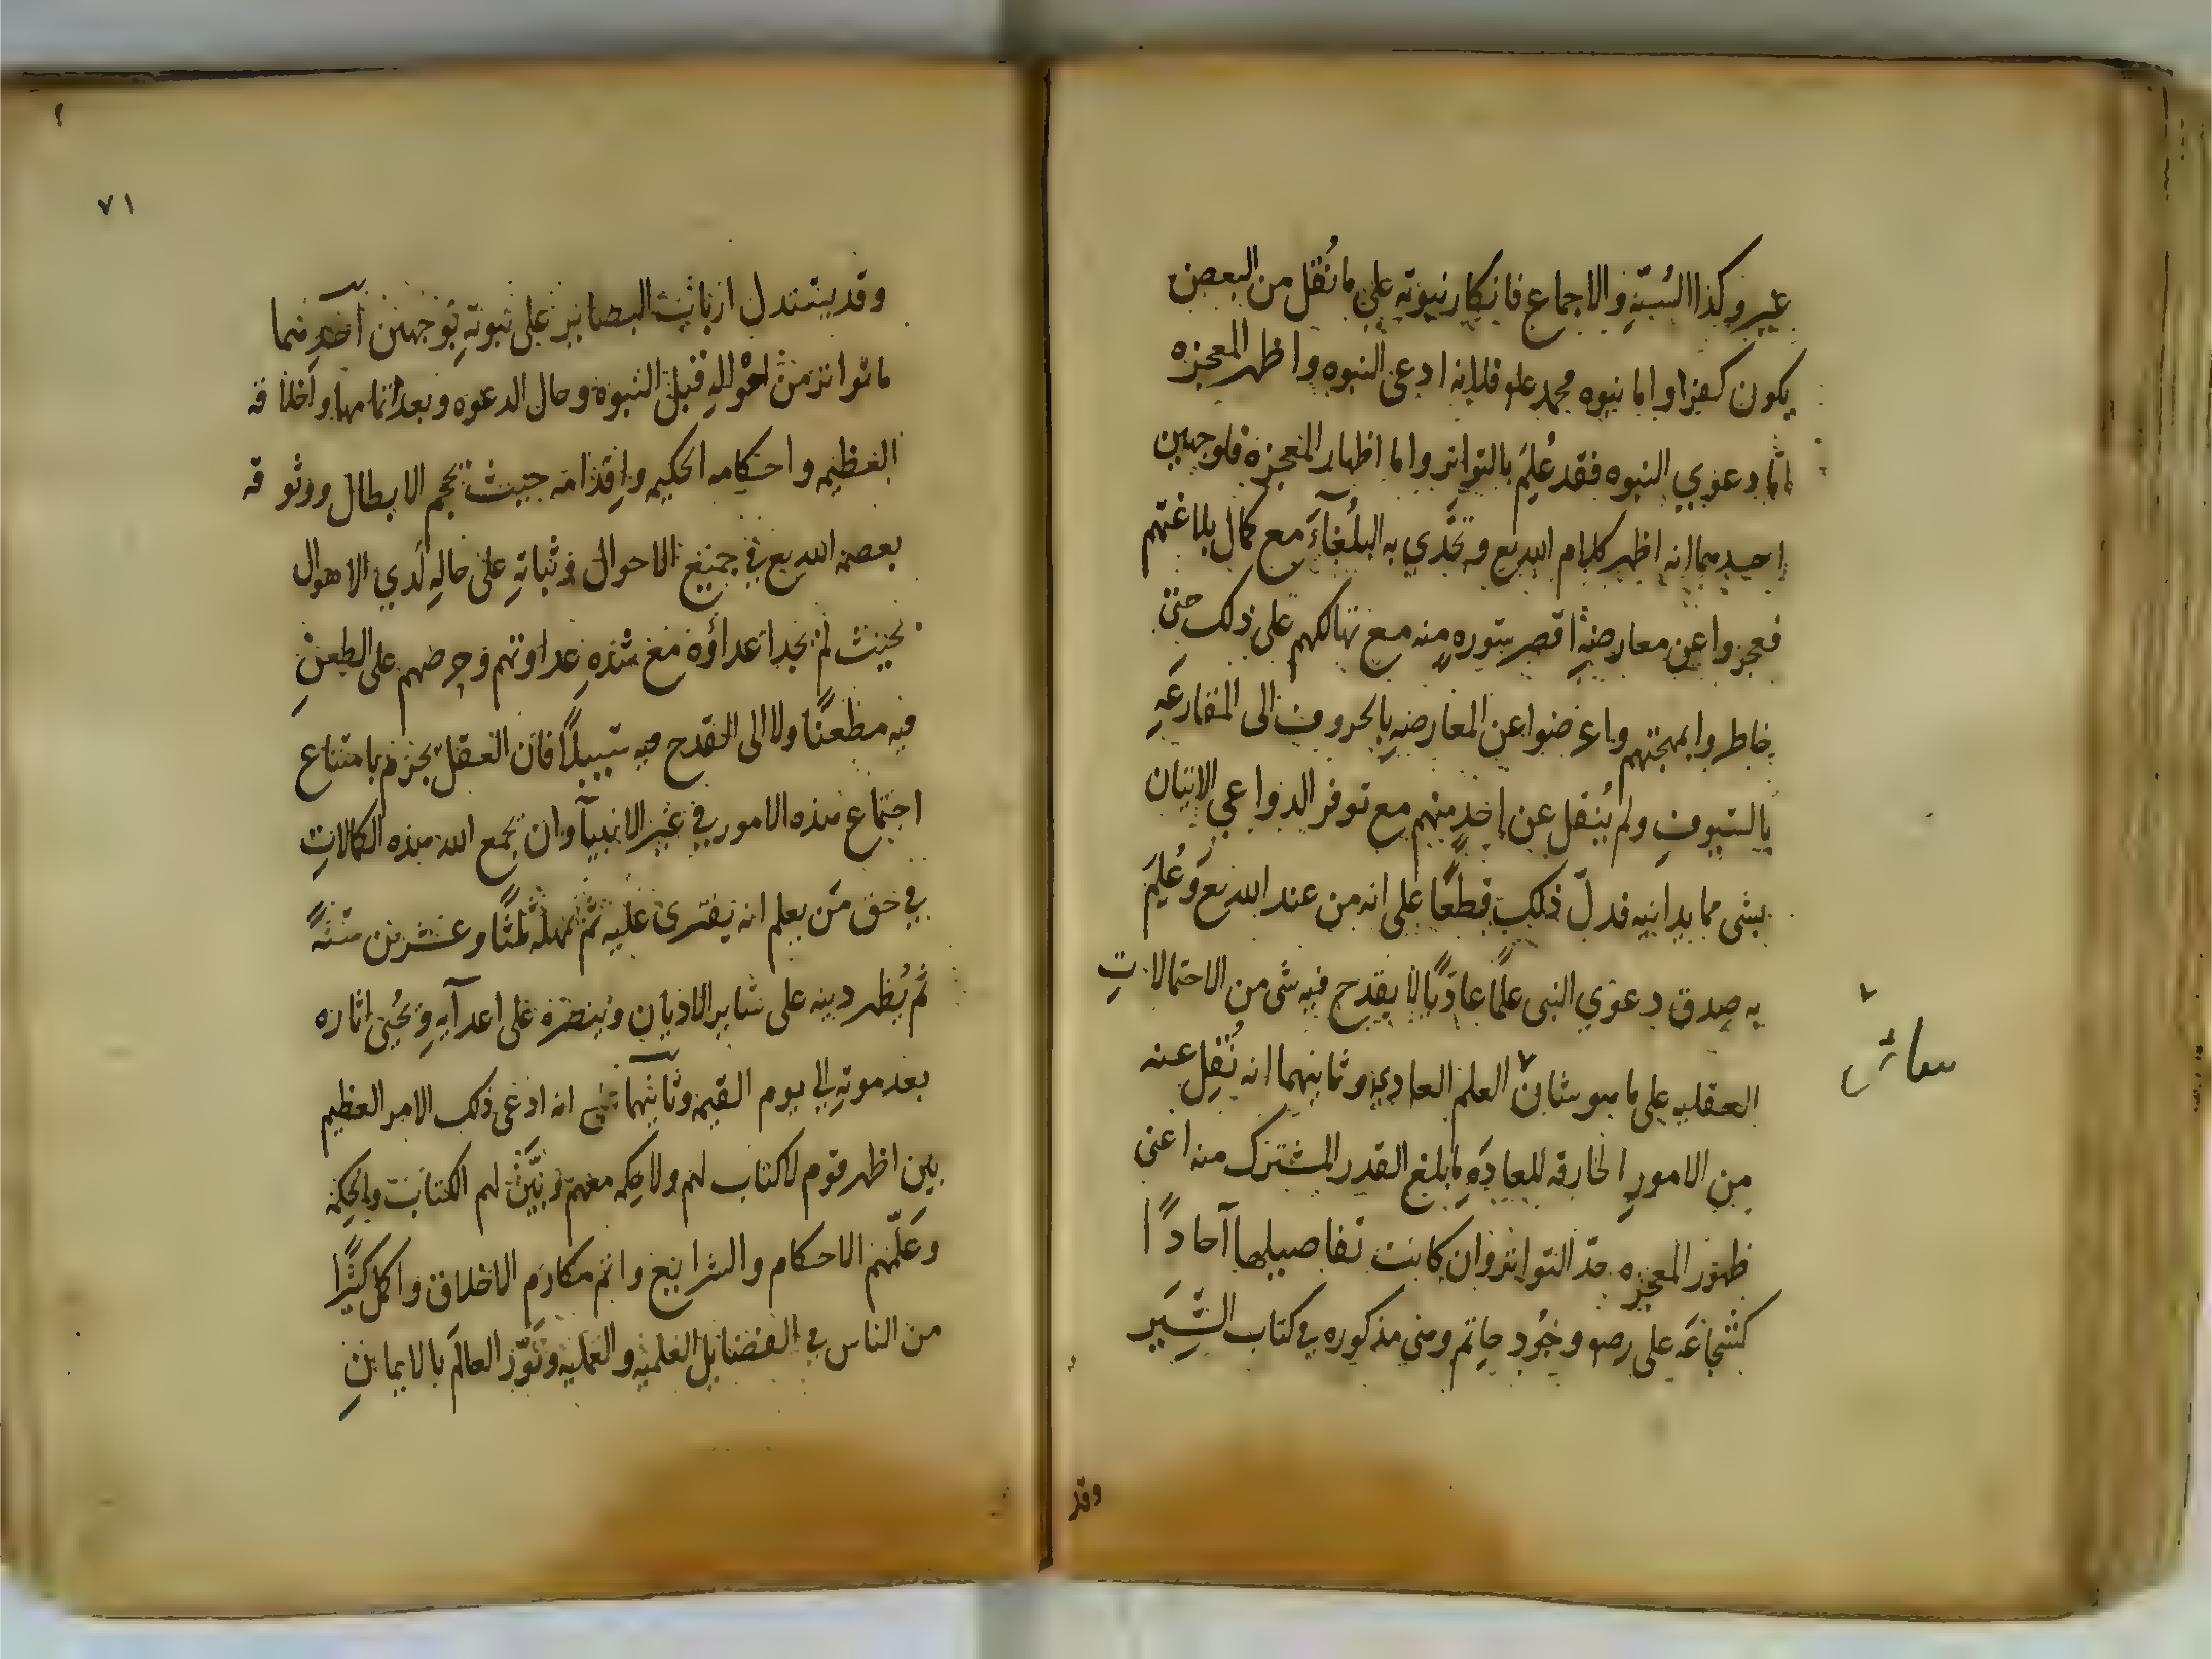 غير وكذا السُنّةِ والاجماع فانكار نبوته على ما نُقل من البعض
يكون كفرا واما نبوه محمد علم فلانه ادعى النبوه واظهر المعجزه
اما دعوي النبوه فقد عُلِمَ بالتواتر واما اظهار المعجزه فلوجهين
احدهما انه اظهر كلام الله تع وتحدّي به البلُغآءَ مع كمال بلاغتهم
فعجزوا عن معارضةِ اقصر سورهٍ منه مع تهالكهم على ذلك حتى
خاطروا بمهجتهم واعرضوا عن المعارضهِ بالحروف الى المقارعَهِ
بالسيوفِ ولم يُنقل عن احدٍ منهم مع توفر الدواعي الاتيان
بشى مما يدانيه فدلّ ذلك قطعًا على انه من عند الله تع وَعُلِمَ
به صدق دعوي النبى علمًا عاديًا لا يقدح فيه شى من الاحتمالاتِ
العقليه على ما هو شان العلم العادي وثانيهما انه نُقِل عنه
من الامورِ الخارقه للعادَهِ ما بلغ القدر المشترك منه اعنى
ظهور المعجزه حدّ التواتر وان كانت تفاصيلها آحادًا
كشجاعَه على رضه وجُود حاتم وهى مذكوره في كتاب السِّيَر
سعاش
وقد
٧١
وقد يستدل ارباب البصاير على نبوتهِ بوجهين آحدهما
ما تواتر من احوالهِ قبل النبوه وحال الدعوه وبعد تمامها واخلاقه
العظيمه واحكامه الحكيمه واِقدامه حيث تحجم الابطال ووثوقه
بعصمه الله تع في جميع الاحوال وثباتهِ على حالهِ لَدي الاهوال
بحيث لم تجد اعداؤُه مع شدّهِ عداوتهم وحرصهم على الطعنِ
فيه مطعنًا ولا الى القدح فيه سبيلًا فان العقل يجزم بامتناع
اجتماع هذه الامور في غير الانبيآ وان يجمع الله هذه الكمالاتِ
في حق مَن يعلم انه يفترى عليه ثم يمهله ثلثًا وعشرين سنَهً
ثم يُظهر دينه على ساير الاديان وينصره على اعدآيهِ ويُحيى اثاره
بعد موتهِ الي يوم القيمه وثآنيهما انه ادعى ذلك الامر العظيم
بين اظهر قوم لا كتاب لهم ولا حكمه معهم وبيَّن لهم الكتاب والحكِمه
وعَلّمهم الاحكام والشرايع واتم مكارم الاخلاق واكمل كثيرًا
من الناس في الفضايل العلميه والعمليه ونَوّر العالَم بالايمانِ